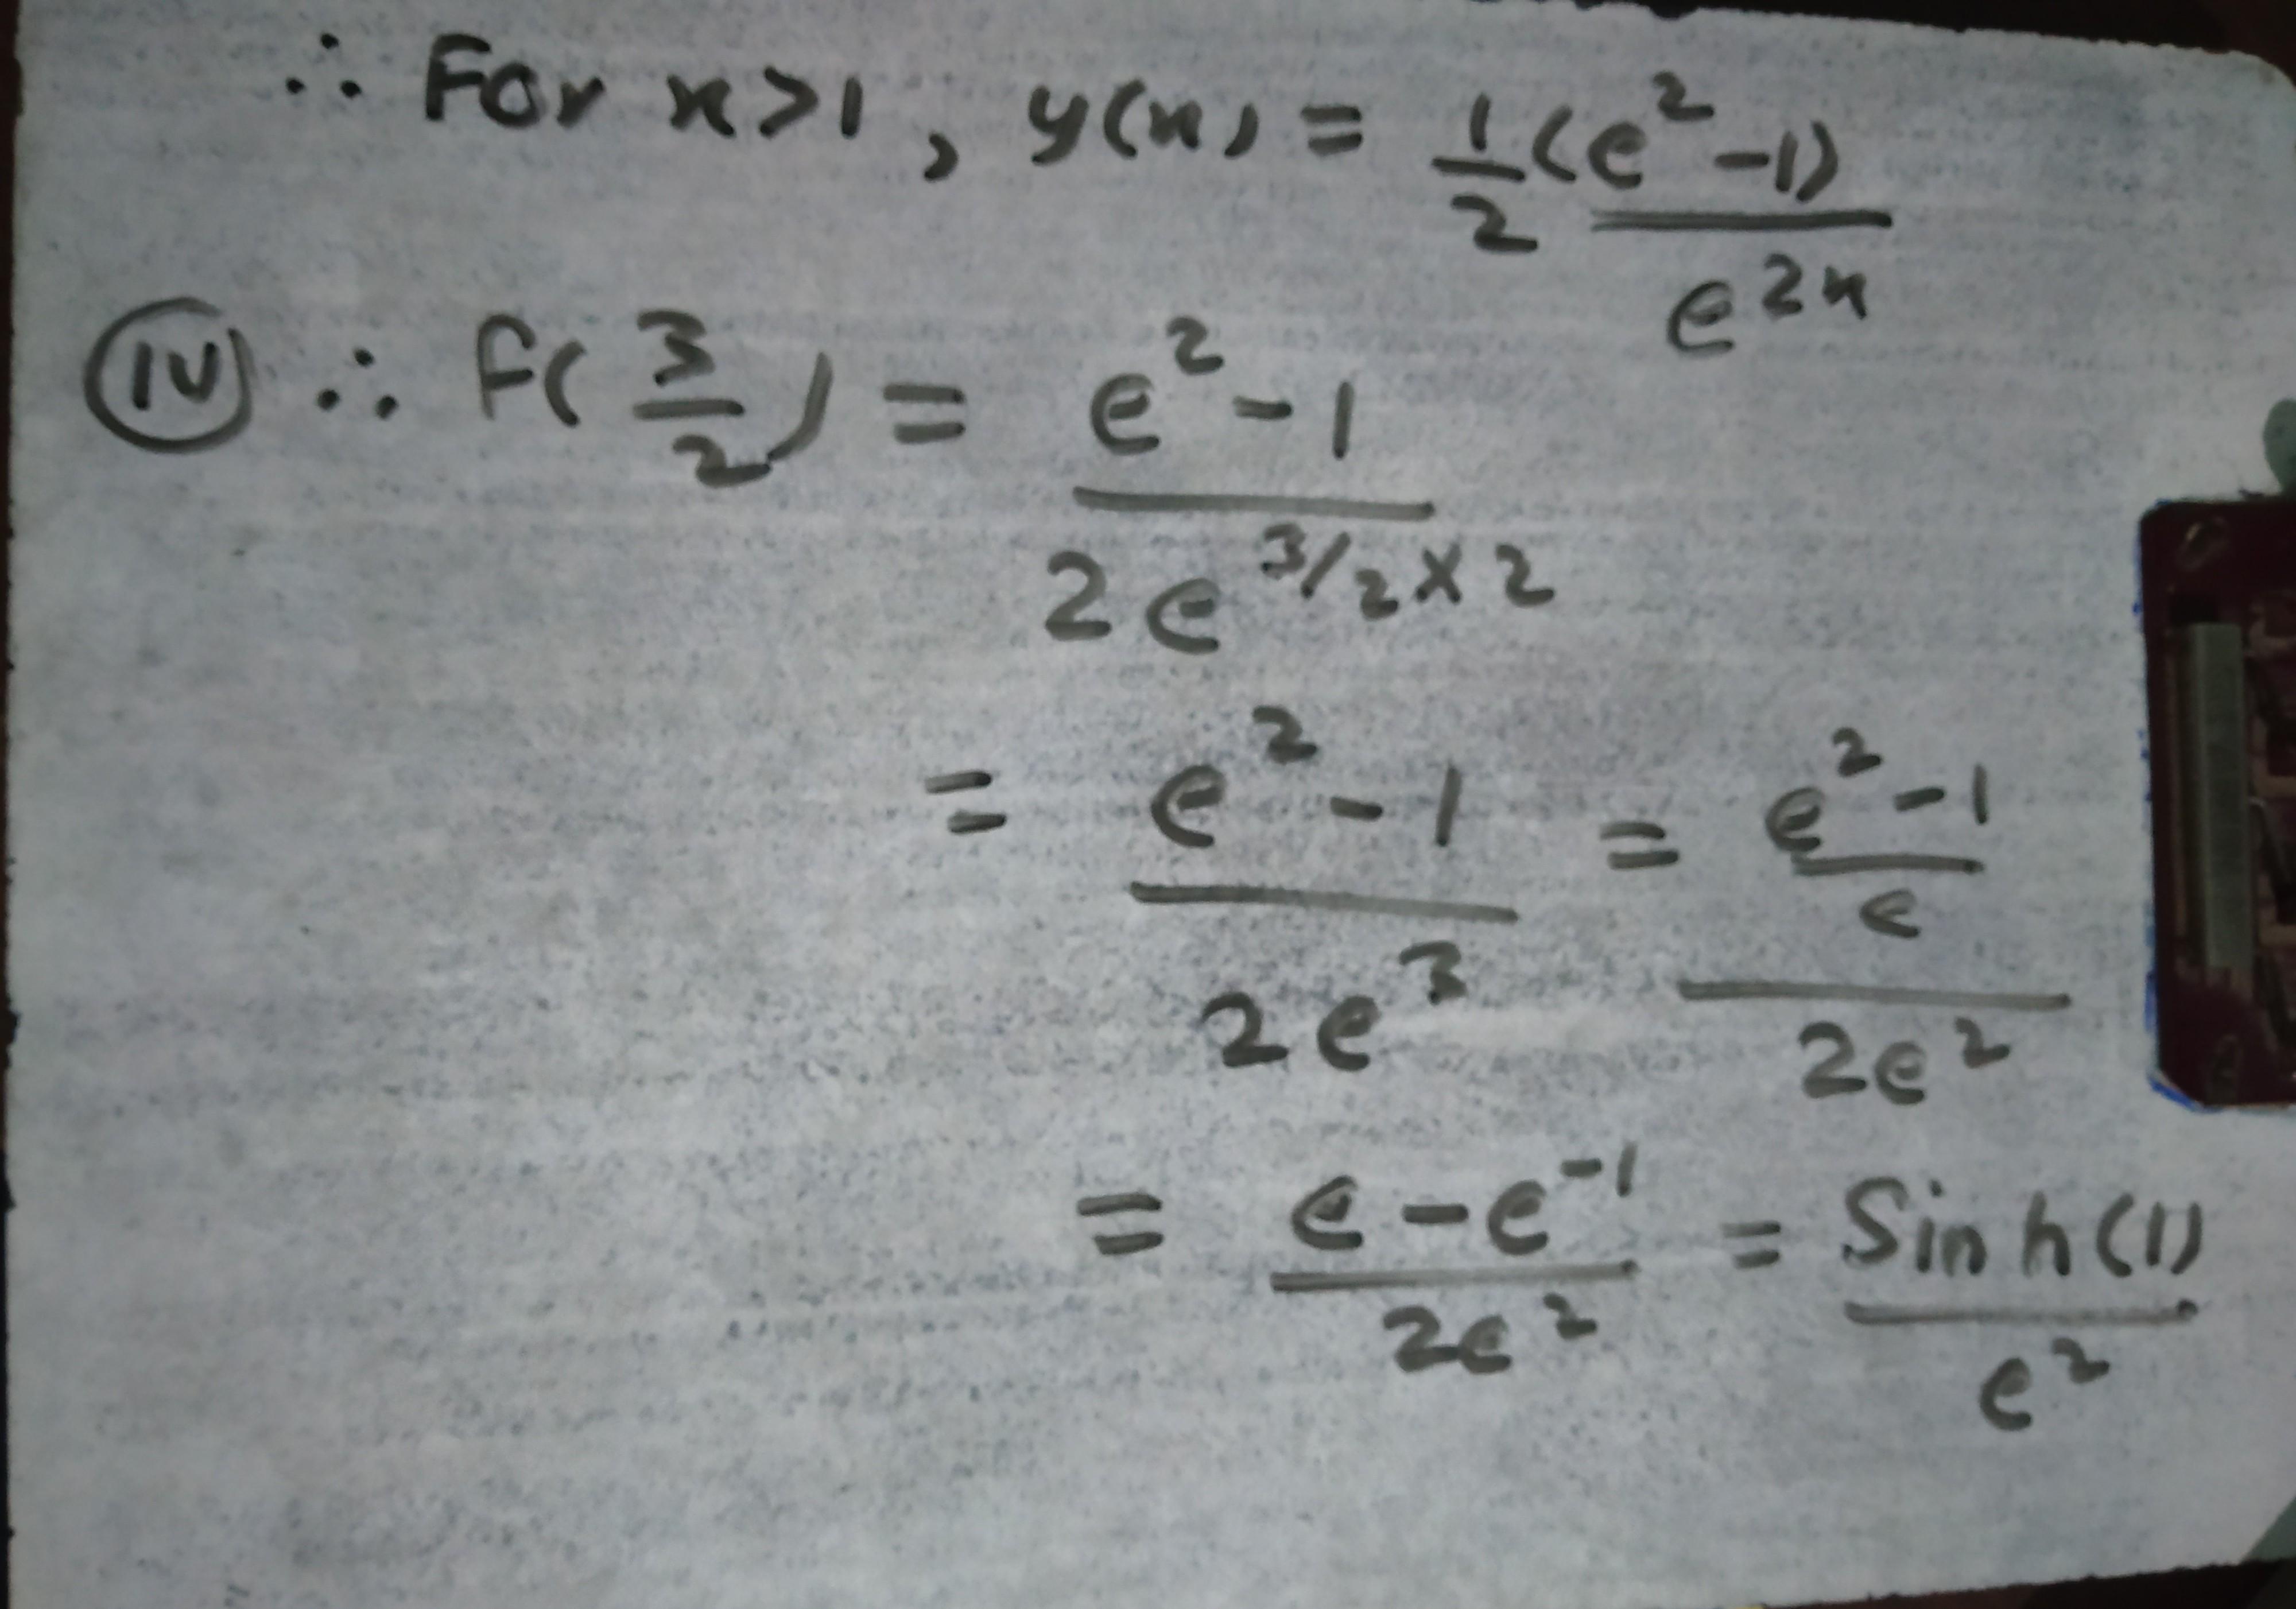 ∴ For x>1, y(x) = 1/2 (e²-1)/e^2x
(IV) ∴ f(3/2) = (e²-1)/(2e^(3/2×2))
= (e²-1)/(2e³) = ((e²-1)/e)/(2e²)
= (e-e⁻¹)/(2e²) = Sinh(1)/e²